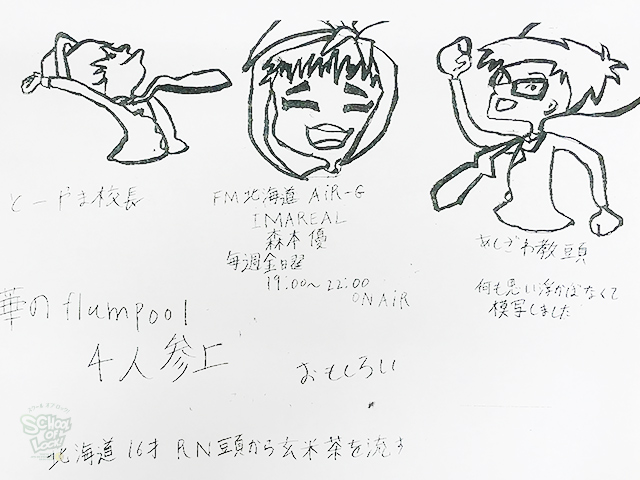 とーやま校長
FM北海道 AiR-G
IMAREAL
森本優
毎週金曜
19:00~22:00
ON AiR
あしざわ教頭
何も思い浮かばなくて
模写しました
華のflumpool
4人参上
おもしろい
SCHOOL
OF
LOCK!
北海道 16才 RN頭から玄米茶を流す